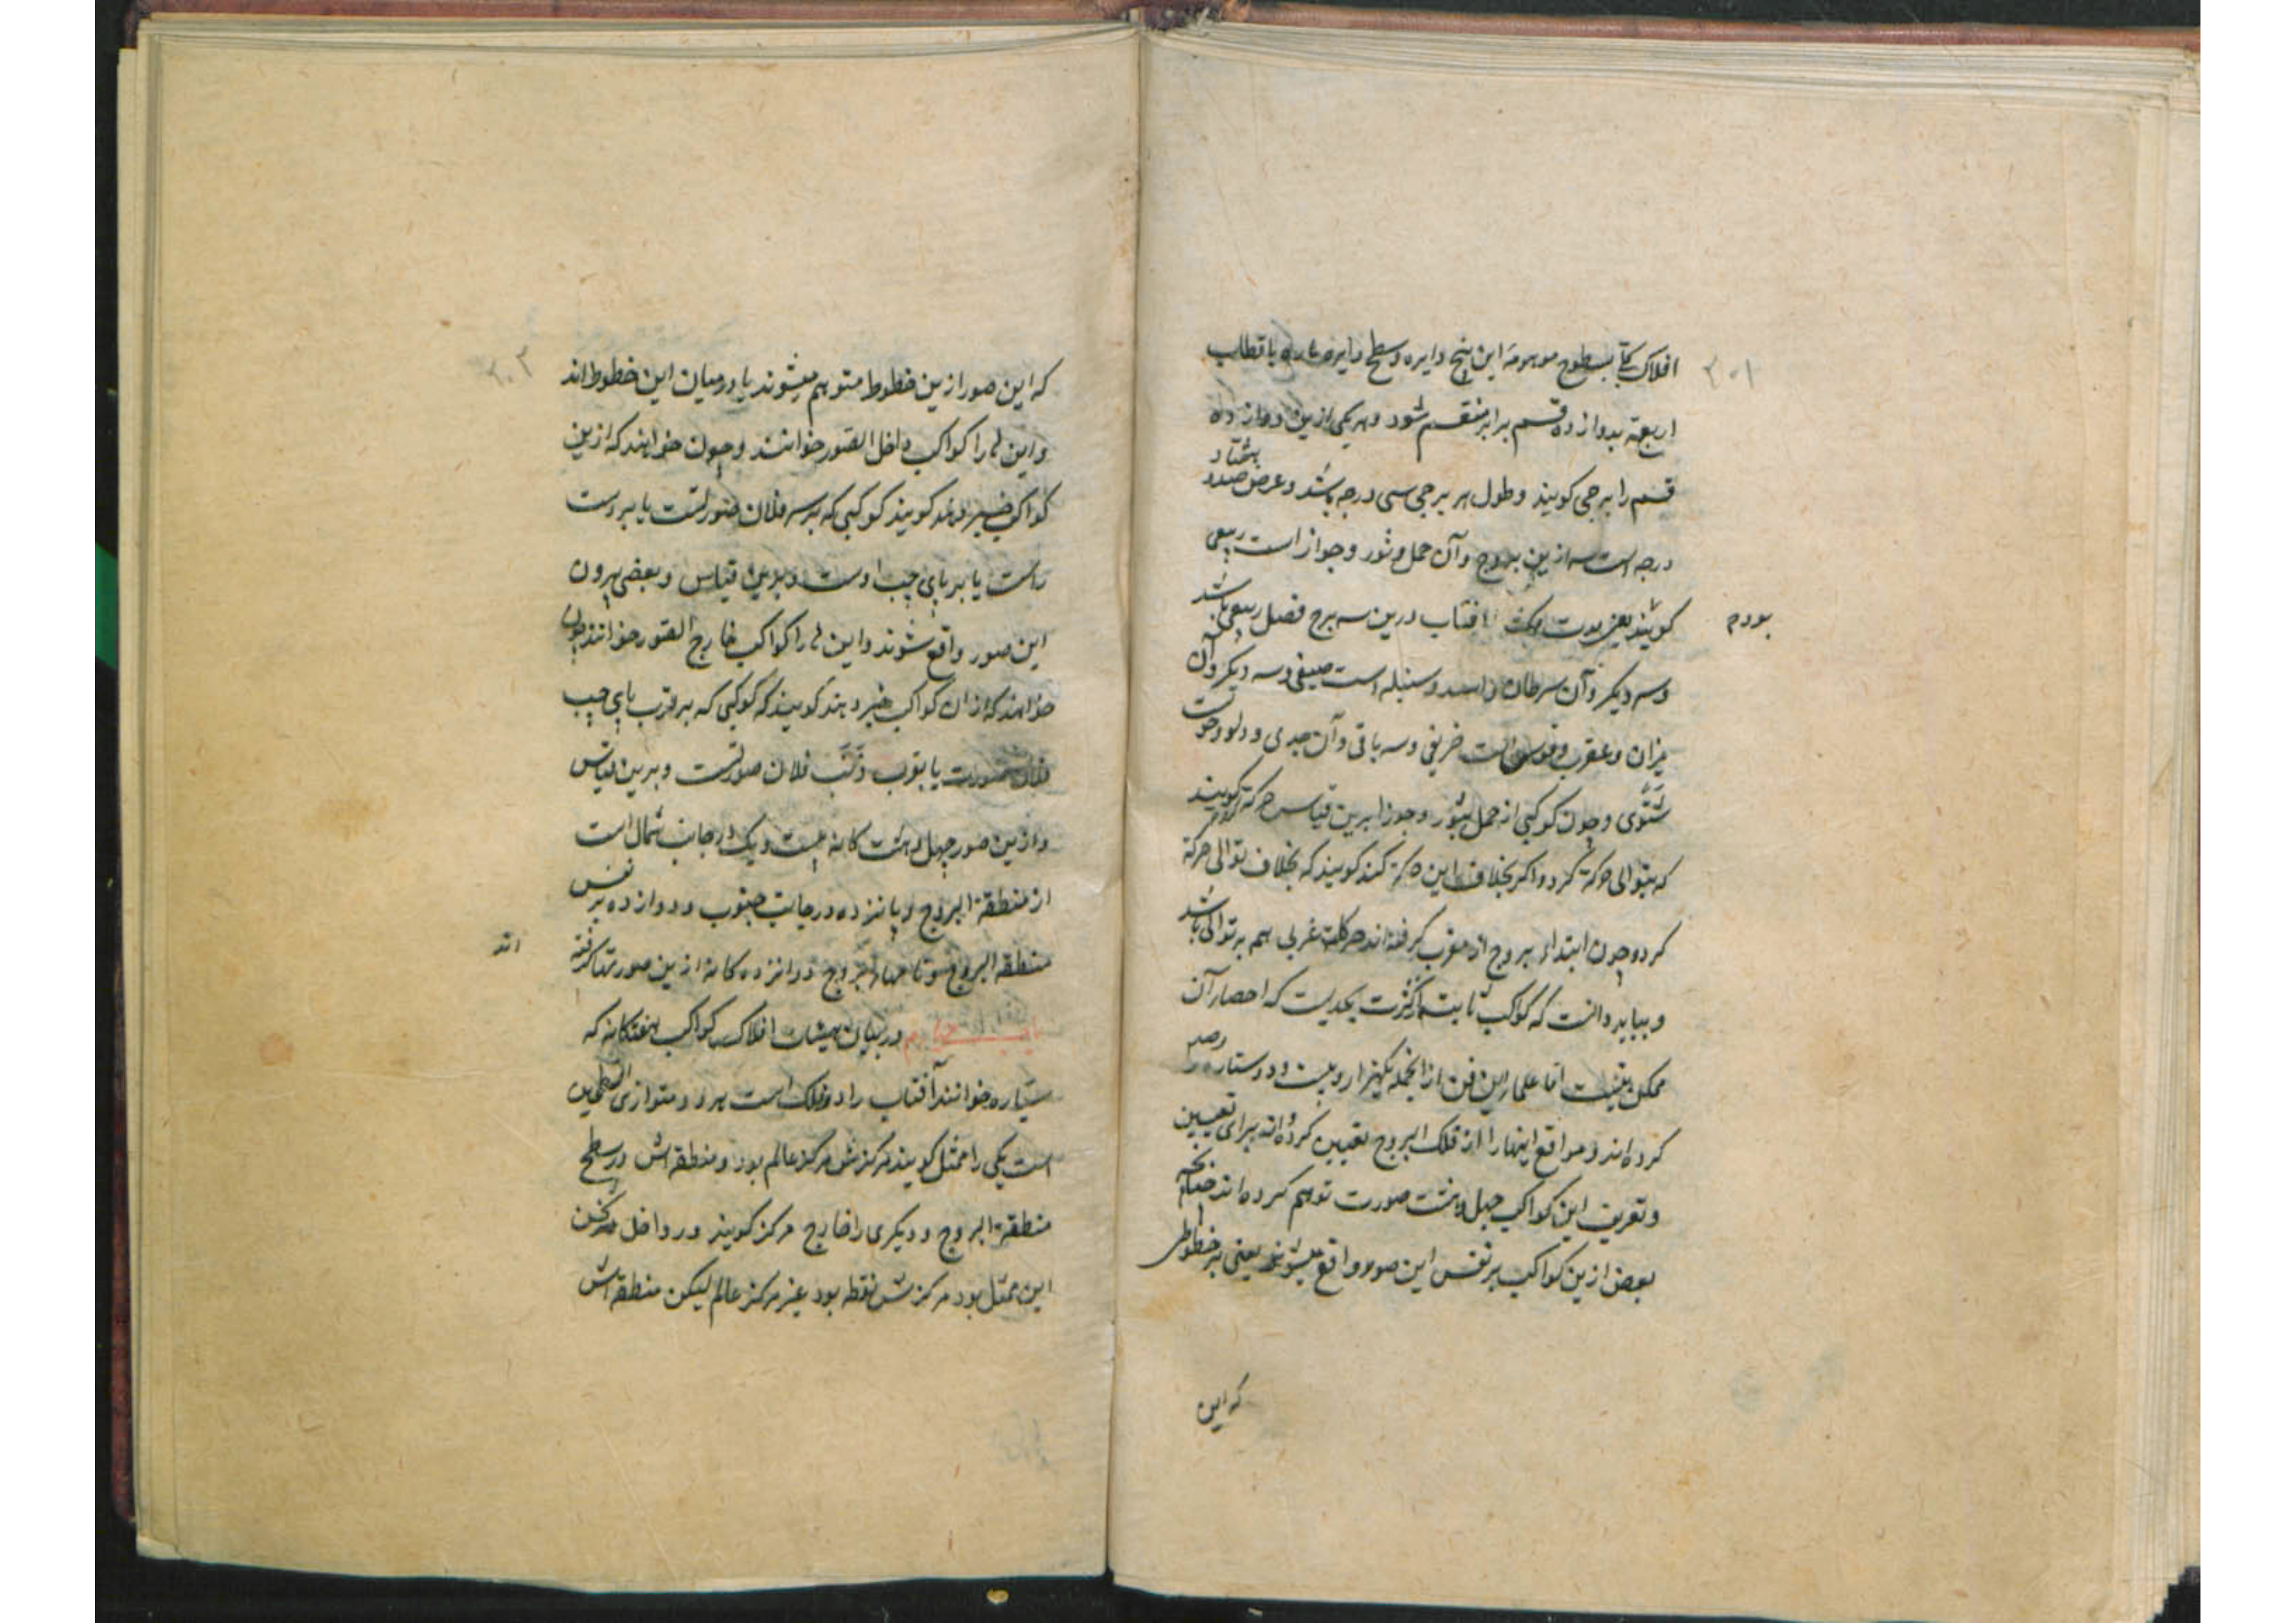 ۲۰۱
افلاک بسطوح موهومه این پنج دایره و سطح دایره ماره باقطاب
اربعه بدوازده قسم برابر منقسم شود و هر یکی ازین دوازده
قسم را برجی کویند و طول هر برجی سی درجه باشد و عرض صد و هشتاد
درجه است سه ازین بروج و آن حمل و ثور و جوزا است ربیعی
کویند یعنی مدت مکث افتاب درین سه برج فصل ربیع باشد
بودم
و سه دیکر و آن سرطان و اسد و سنبله است صیفی و سه دیکر و آن
میزان و عقرب و قوس است خریفی و سه باقی و آن جدی و دلو و حوت
شتوی و چون کوکبی از حمل بثور و جوزا برین قیاس حرکة کند کویند
که بتوالی حرکة کرد و اکر بخلاف این حرکة کند کویند که بخلاف توالی حرکة
کرده چون ابتداء بروج از مغرب کرفته اند حرکات غربی هم بر توالی باشد
و بباید دانست که کوکب ثابته از کثرت بحدیست که احصار آن
ممکن نیست اما علماء این فن از انجمله یکهزار و بیست و دو ستاره رصد
کرده اند و مواقع اینها را از فلک البروج تعیین کرده اند برای تعیین
و تعریف این کواکب چهل و هشت صورت توهم کرده اند چنانچه
بعض ازین کواکب بر نفس این صور واقع میشوند یعنی بر خطوطی
که این
۲۰۲
که این صور ازین خطوط متوهم میشوند یا در میان این خطوط اند
و این ها را کواکب داخل الصور خوانند و چون خواهند که ازین
کواکب خبر دهند کویند کوکبی که بر سه فلان صورتست یا بر دست
راست یا بر پای چپ اوست و بدین قیاس و بعضی بیرون
این صور واقع شوند و این ها را کواکب خارج الصور خوانند چون
خواهند که از ان کواکب خبر دهند کویند که کوکبی که بر قرب پای چپ
فلان صورت یا بقرب ذنب فلان صورتست و برین قیاس
و ازین صور چهل و هشت کانه بیست و یک در جانب شمال است
از منطقة البروج و پانزده در جانب جنوب و دوازده بر نفس
منطقه البروج و بروج دوازده کانه ازین صورتها کرفته
اند
در بیان هیئات افلاک کواکب هفتکانه که
سیاره خوانند آفتاب را دو فلک است هر دو متوازی السطحین
است یکی را ممثل کویند مرکزش مرکز عالم بود و منطقه اش در سطح
منطقة البروج و دیکری را خارج مرکز کویند و در داخل ثخن
این ممثل بود مرکزش نقطه بود غیر مرکز عالم لیکن منطقه اش